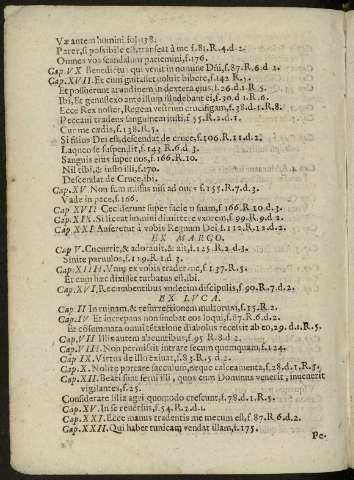 Væ autem homini. fol. 138.
Pater, si possibile est, transeat à me f. 81. R. 4. d. 2.
Omnes vos scandalum patiemini, f. 176.
Benedictus qui venit in nomine Dñi, f. 87. R. 6. d. 2.
Cap. XVII. Et cum gustasset noluit bibere, f. 142 R. 5.
Et posuerunt arundinem in dextera eius, f. 26. d. 1. R. 5.
Ibi, Et genuflexo ante illum illudebant ei, f. 30. d. 1. R. 6.
Ecce Rex noster, Regem vestrum crucifigam, f. 38. d. 1. R. 8.
Peccaui tradens sanguinem iusti, f. 55. R. 2. d. 1.
Cur me cædis, f. 138. R. 5.
Si filius Dei est, descendat de cruce, f. 106. R. 11. d. 2.
Laqueo se suspendit, f. 143 R. 6. d. 3.
Sanguis eius super nos, f. 166. R. 10.
Nil tibi, & iusto illi, f. 170.
Descendat de Cruce, ibi.
Cap. XV. Non sum missus nisi ad oues f. 155. R. 7. d. 3.
Vade in pace, f. 166.
Cap XVII. Ceciderunt super facie suam, f. 166. R 10. d. 3.
Cap. XIX. Si liceat homini dimittere vxorem, f. 99. R. 9. d 2.
Cap XXI. Auferetur à vobis Regnum Dei f. 112. R. 12. d. 2.
EX MARCO.
Cap V. Cucurrit, & adorauit, & ait, f. 125. R. 2. d. 3.
Sinite paruulos, f. 119. R. 1 d. 3.
Cap. XIIII. Vnus ex vobis tradet me, f. 137. R. 5.
Et cum hæc dixisset turbatus est, ibi.
Cap. XVI. Recumbentibus vndecim discipulis, f. 90. R. 7. d. 2.
EX LVCA.
Cap. II In ruinam, & resurrectionem multorum, f. 15. R. 2.
Cap. IV Et increpans non sinebat eos loqui, f. 87. R. 6. d. 2.
Et cōsummata omni tētatione diabolus recessit ab eo, 29. d. 1. R. 5.
Cap. VII Illis autem abeuntibus, f. 95 R. 8. d. 2.
Cap. VIII. Non permisit intrare secum quemquam, f. 124.
Cap IX. Virtus de illo exiuat, f. 83. R. 5 d. 2.
Cap. X. Nolite portare sacculum, neque calceamenta, f. 28. d. 1. R. 5.
Cap. XII. Beati sunt serui illi, quos cum Dominus venerit, inuenerit
vigilantes, f. 25.
Considerate lilia agri quomodo crescunt, f. 78. d. 1. R. 5.
Cap. XV. In se reuersus, f. 54. R. 2. d. 1.
Cap. XXI. Ecce manus tradentis me mecum est, f. 87. R. 6 d. 2.
Cap. XXII. Qui habet tunicam vendat illam, f. 175.
Pe-